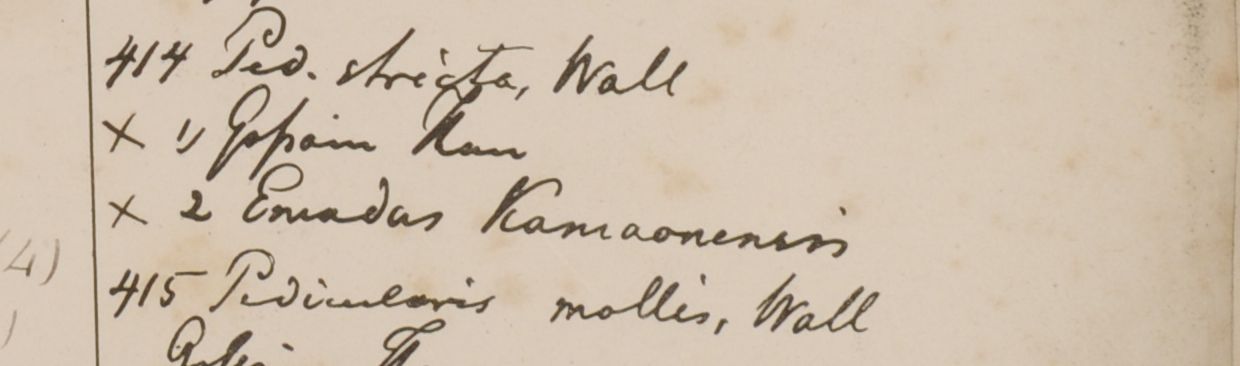 414 Ped. stricta, Wall
× 1) Gossain Than
× 2 Emadus Kamaonensis
415 Pedicularis mollis, Wall